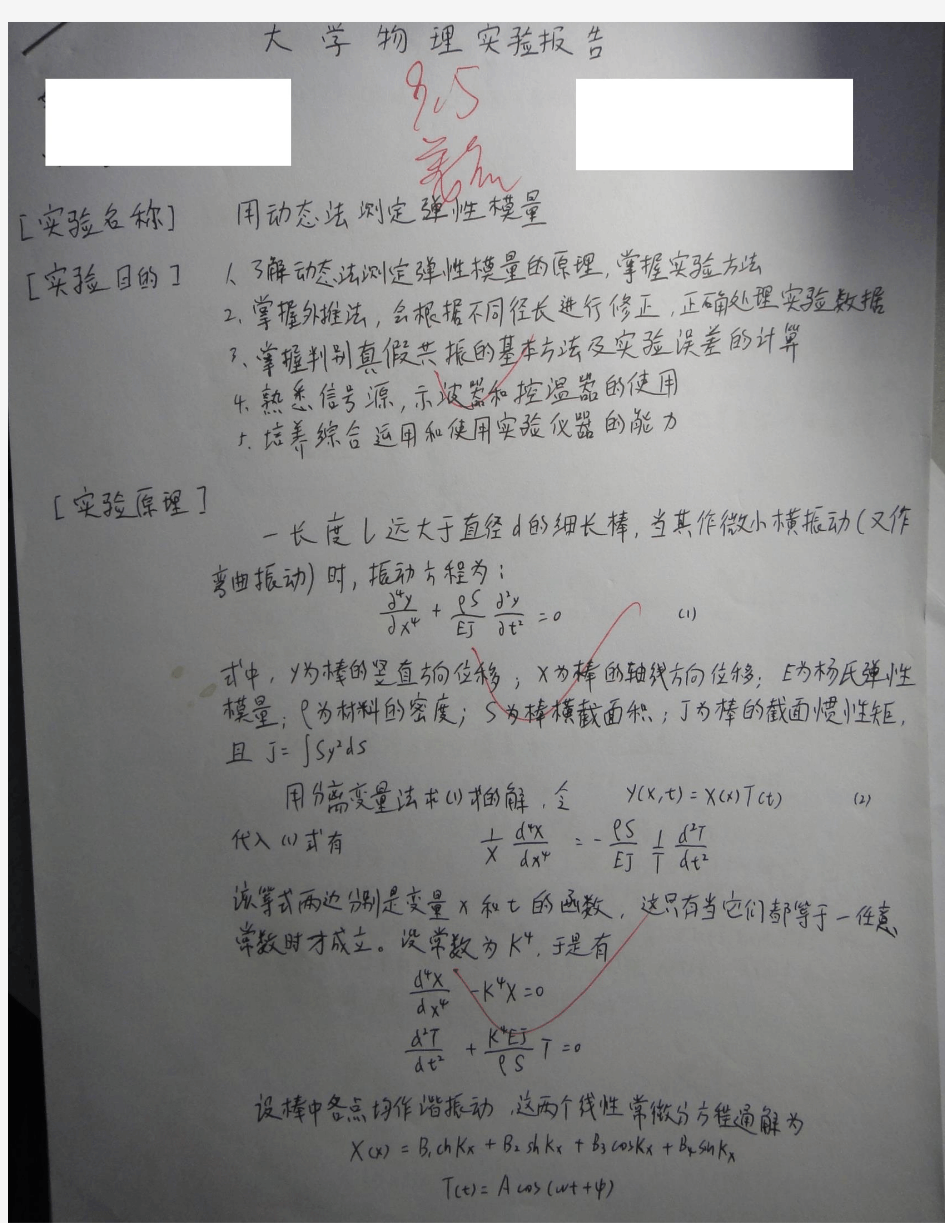 大学物理实验报告
9.5
[实验名称] 用动态法测定弹性模量
[实验目的] 1、了解动态法测定弹性模量的原理，掌握实验方法
2、掌握外推法，会根据不同径长进行修正，正确处理实验数据
3、掌握判别真假共振的基本方法及实验误差的计算
4、熟悉信号源，示波器和控温器的使用
5、培养综合运用和使用实验仪器的能力
[实验原理]
一长度l远大于直径d的细长棒，当其作微小横振动(又作
弯曲振动)时，振动方程为：
∂⁴y/∂x⁴ + ρS/EJ ∂²y/∂t² = 0 (1)
式中，y为棒的竖直方向位移；x为棒的轴线方向位移；E为杨氏弹性
模量；ρ为材料的密度；S为棒横截面积；J为棒的截面惯性矩，
且 J=∫Sy²dS
用分离变量法求(1)式的解，令 y(x,t)=X(x)T(t) (2)
代入(1)式有 1/X d⁴X/dx⁴ = - ρS/EJ 1/T d²T/dt²
该等式两边分别是变量x和t的函数，这只有当它们都等于一任意
常数时才成立。设常数为K⁴，于是有
d⁴X/dx⁴ - K⁴X=0
d²T/dt² + K⁴EJ/ρS T=0
设棒中各点均作谐振动，这两个线性常微分方程通解为
X(x) = B₁chKx + B₂shKx + B₃cosKx + B₄sinKx
T(t) = A cos(ωt+φ)